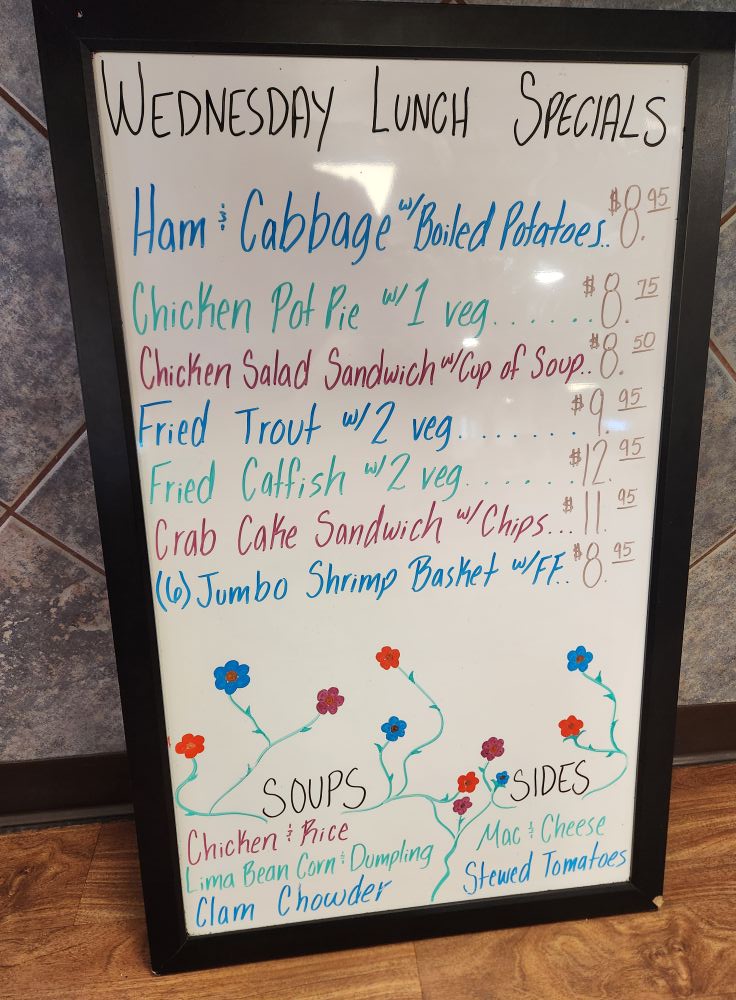 WEDNESDAY LUNCH SPECIALS
Ham & Cabbage w/Boiled Potatoes.. $8.95
Chicken Pot Pie w/1 veg...... $8.75
Chicken Salad Sandwich w/Cup of Soup.. $8.50
Fried Trout w/2 veg....... $9.95
Fried Catfish w/2 veg...... $12.95
Crab Cake Sandwich w/Chips... $11.95
(6) Jumbo Shrimp Basket w/FF.. $8.95
SOUPS
Chicken & Rice
Lima Bean Corn & Dumpling
Clam Chowder
SIDES
Mac & Cheese
Stewed Tomatoes